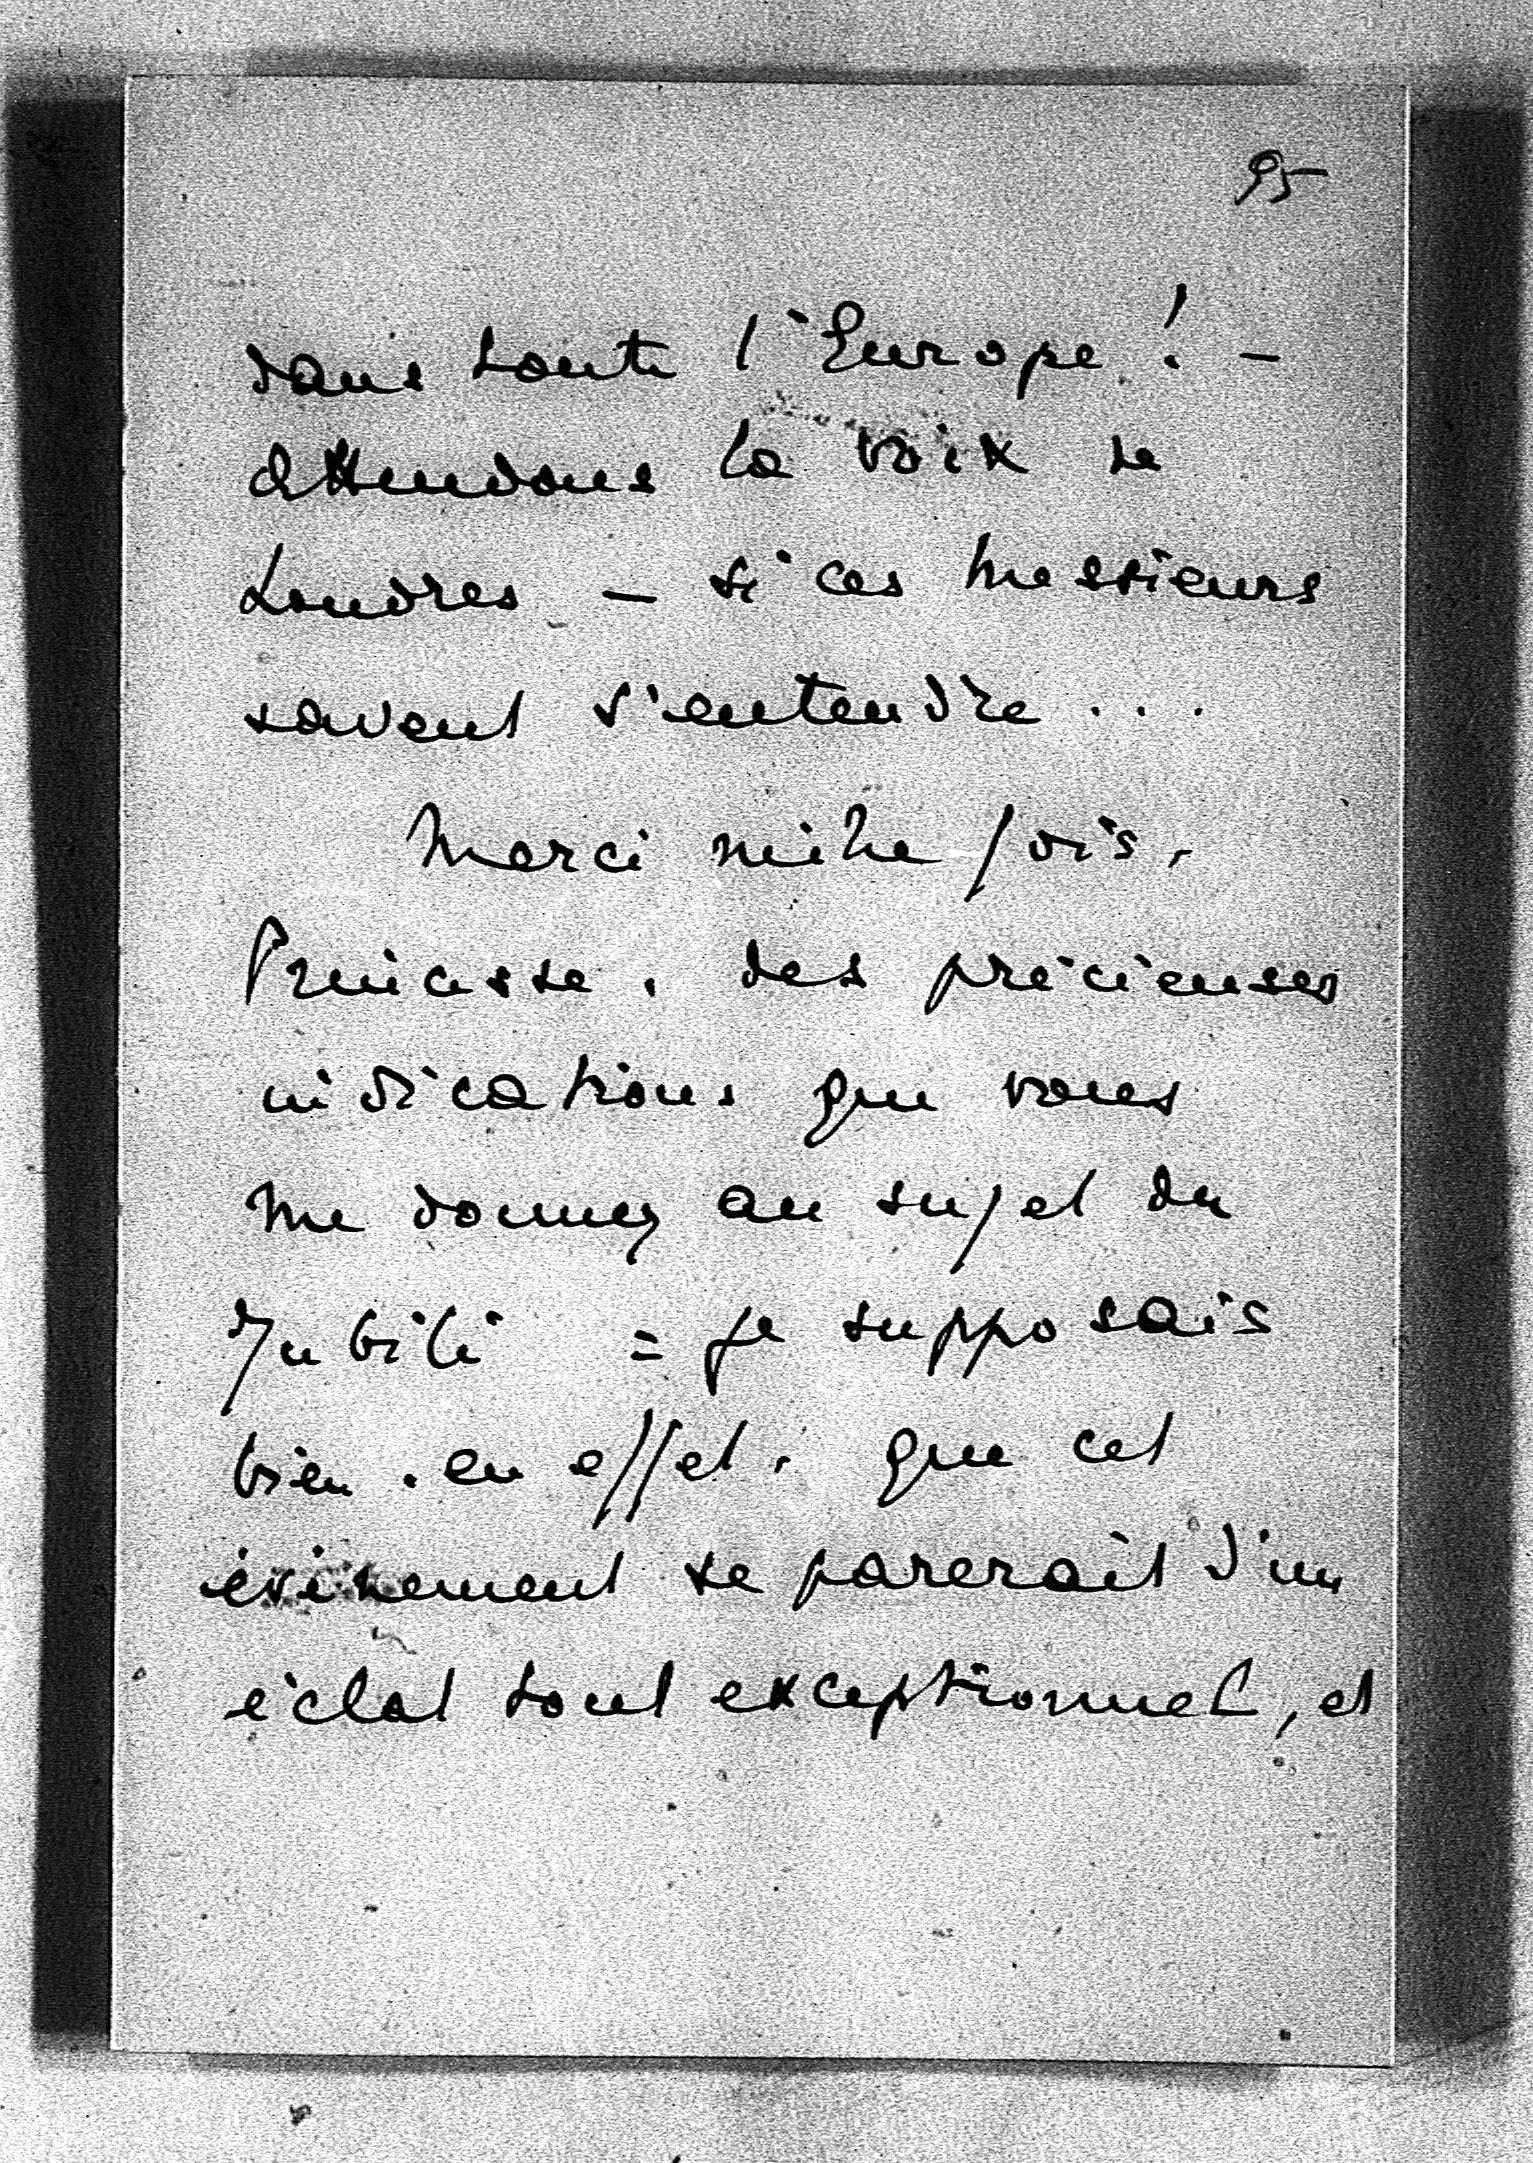 95
dans toute l'Europe ! –
attendons la voix de
Londres – si ces Messieurs
savent s'entendre ...
Merci mille fois,
Princesse, des précieuses
indications que vous
me donnez au sujet du
Jubilé = je supposais
bien, en effet, que cet
événement se parerait d'un
éclat tout exceptionnel, et